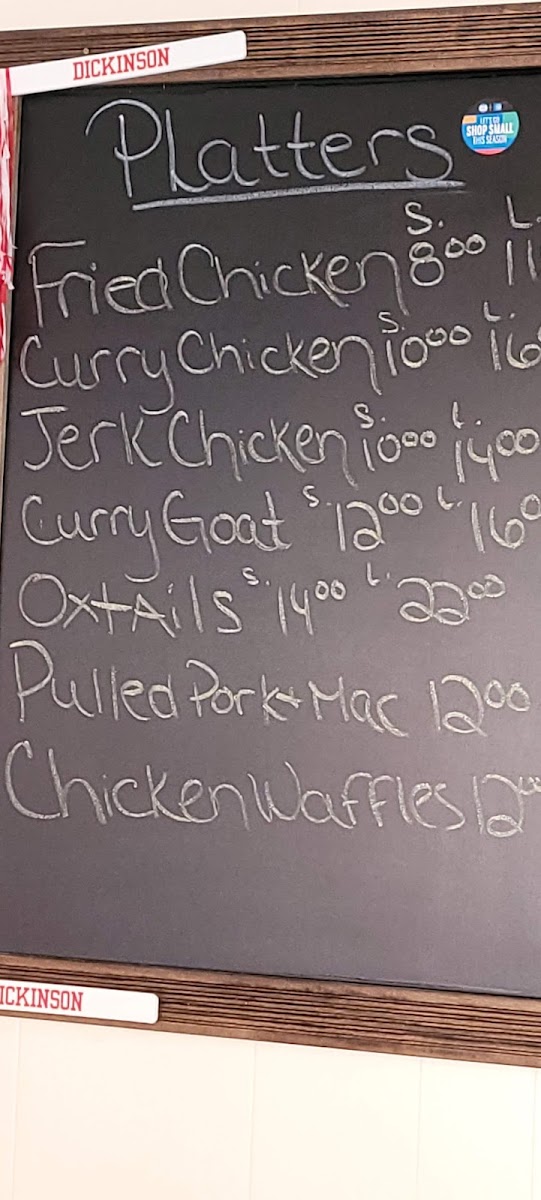 DICKINSON
Platters
LET'S GO
SHOP SMALL
THIS SEASON
S. L.
Fried Chicken 8.00 11
S. L.
Curry Chicken 10.00 16
S. L.
Jerk Chicken 10.00 14.00
Curry Goat S. 12.00 L. 16.0
Oxtails S. 14.00 L. 22.00
Pulled Pork + Mac 12.00
Chicken Waffles 12.00
ICKINSON